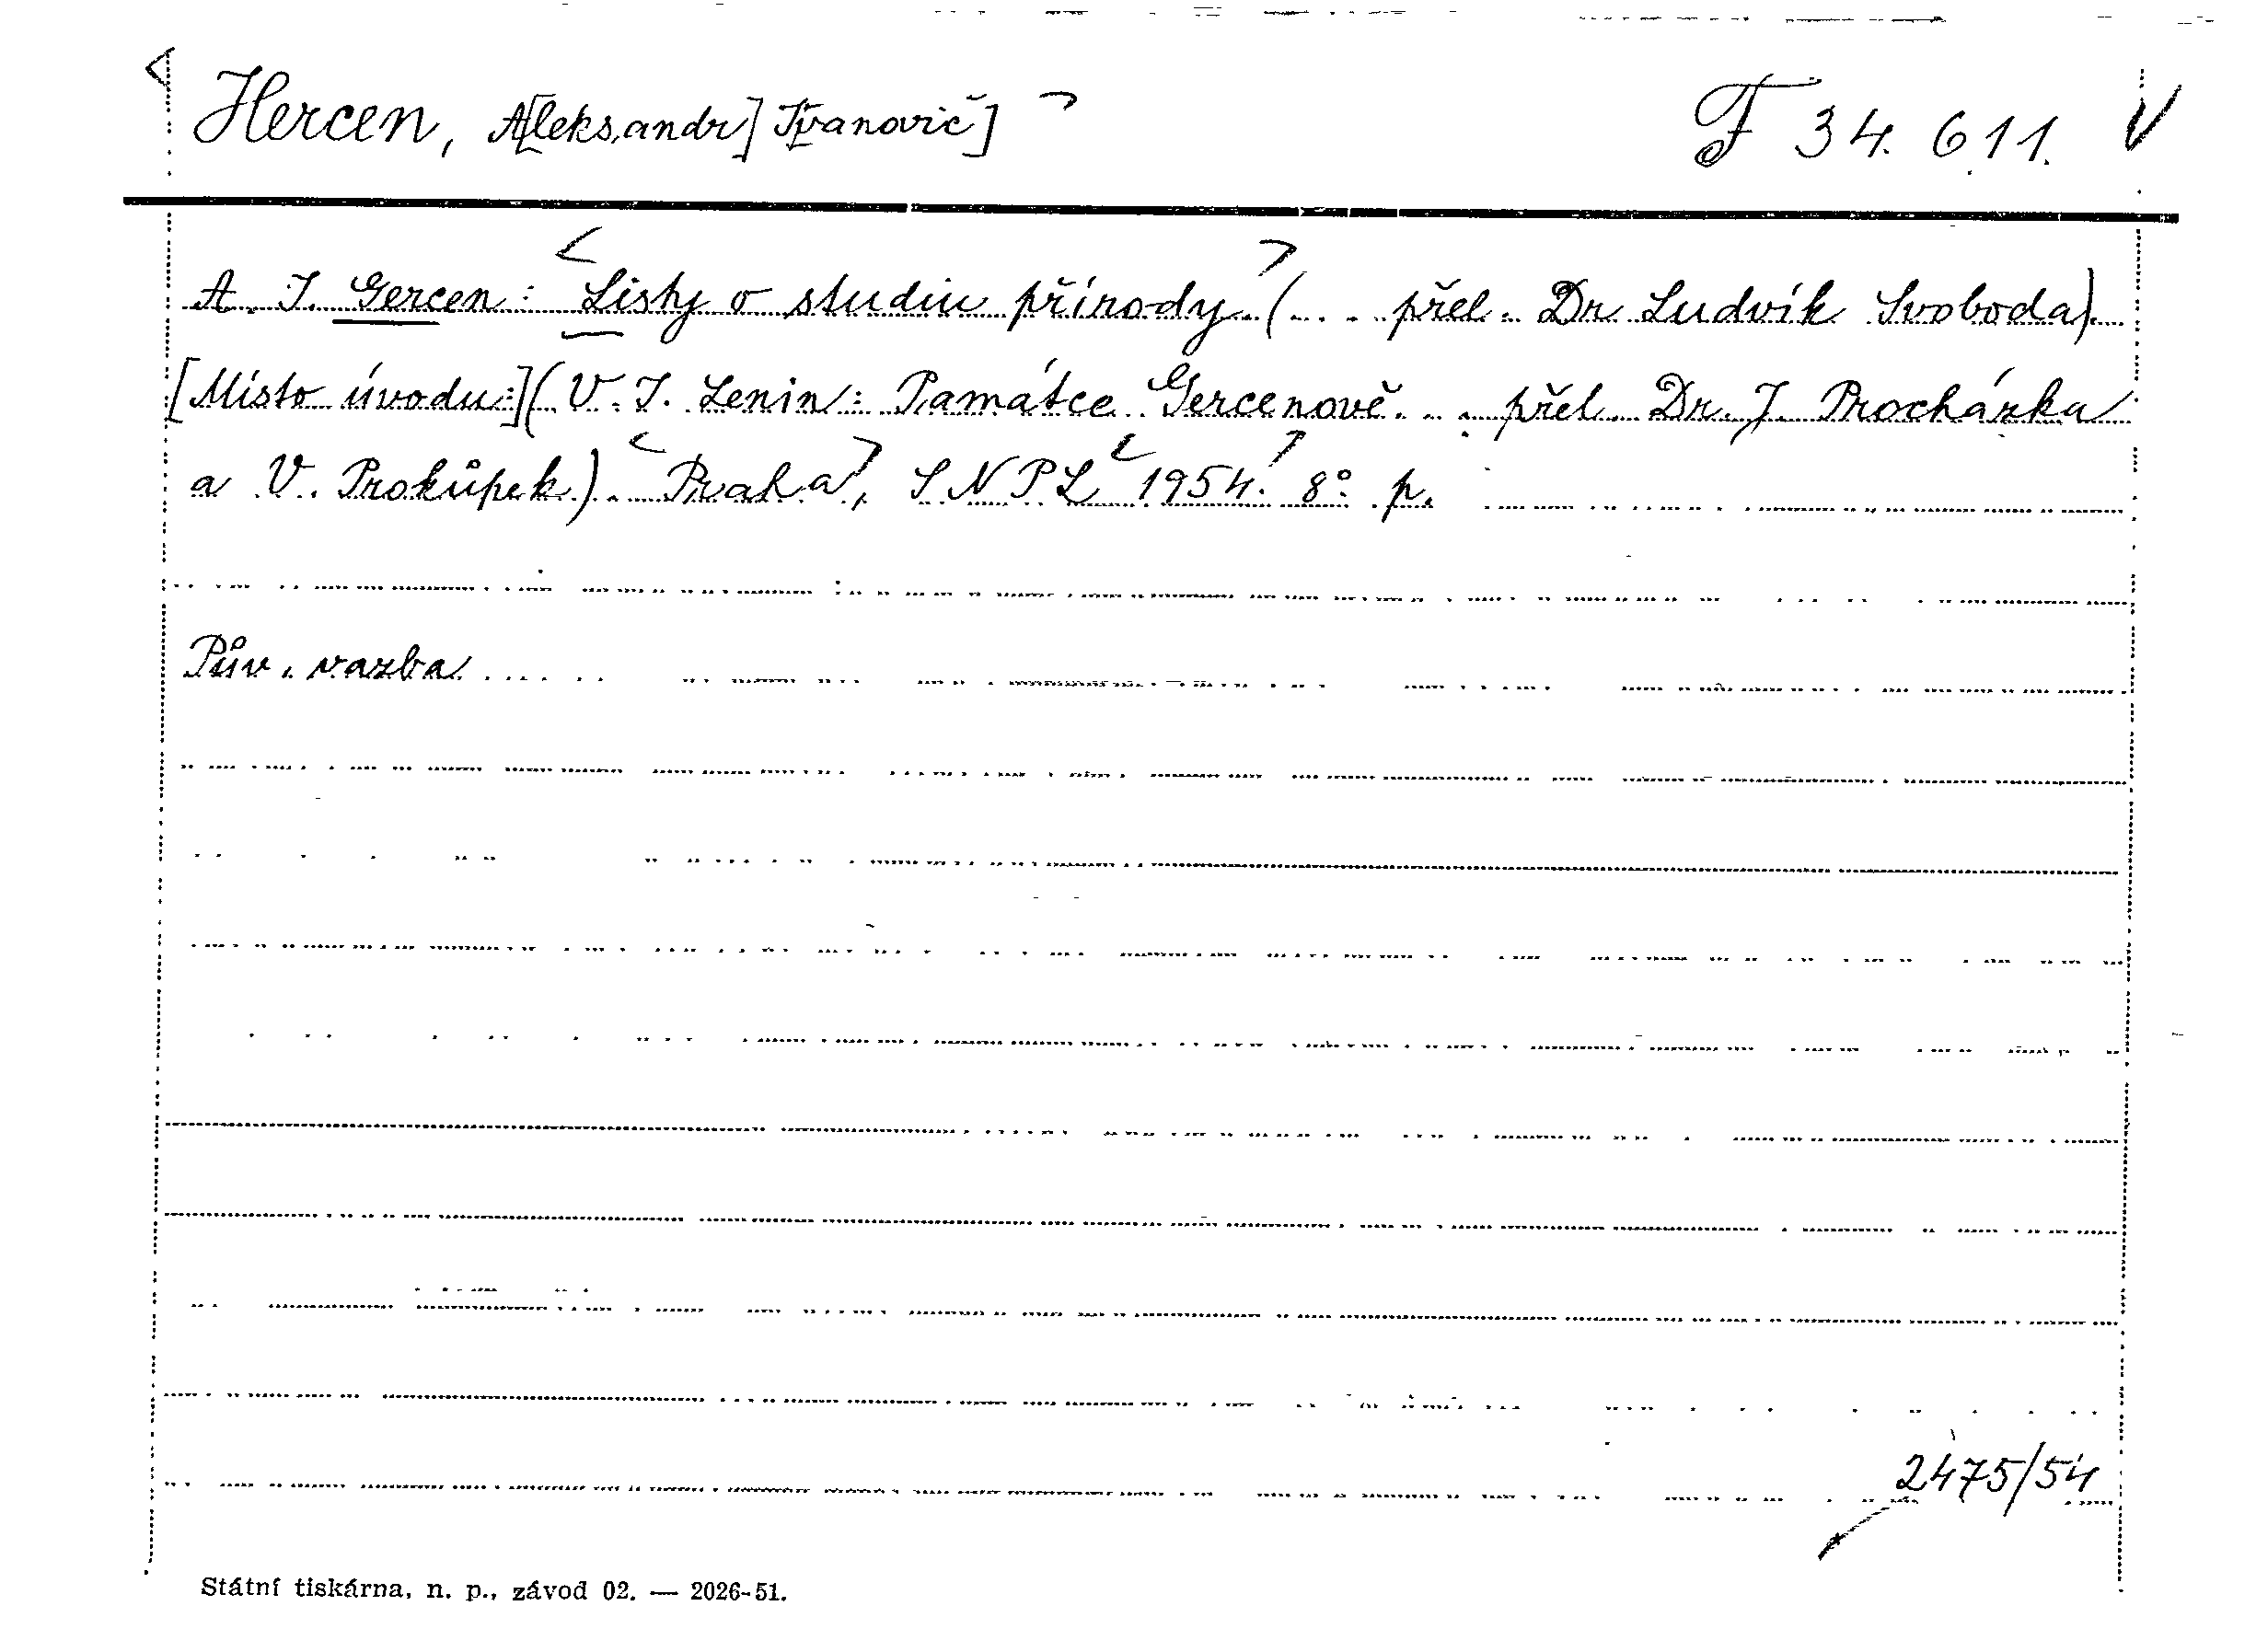 < Hercen, A[leksandr] I[vanovič] > F 34.611. V
A. I. Gercen: <Listy o studiu přírody.> (... přel. Dr Ludvík Svoboda).
[Místo úvodu:] (V. I. Lenin: Památce Gercenově... přel. Dr. J. Procházka
a V. Prokůpek). <Praha>, SNPL <1954.> 8° p.
Pův. vazba
2475/54
Státní tiskárna, n. p., závod 02. — 2026-51.